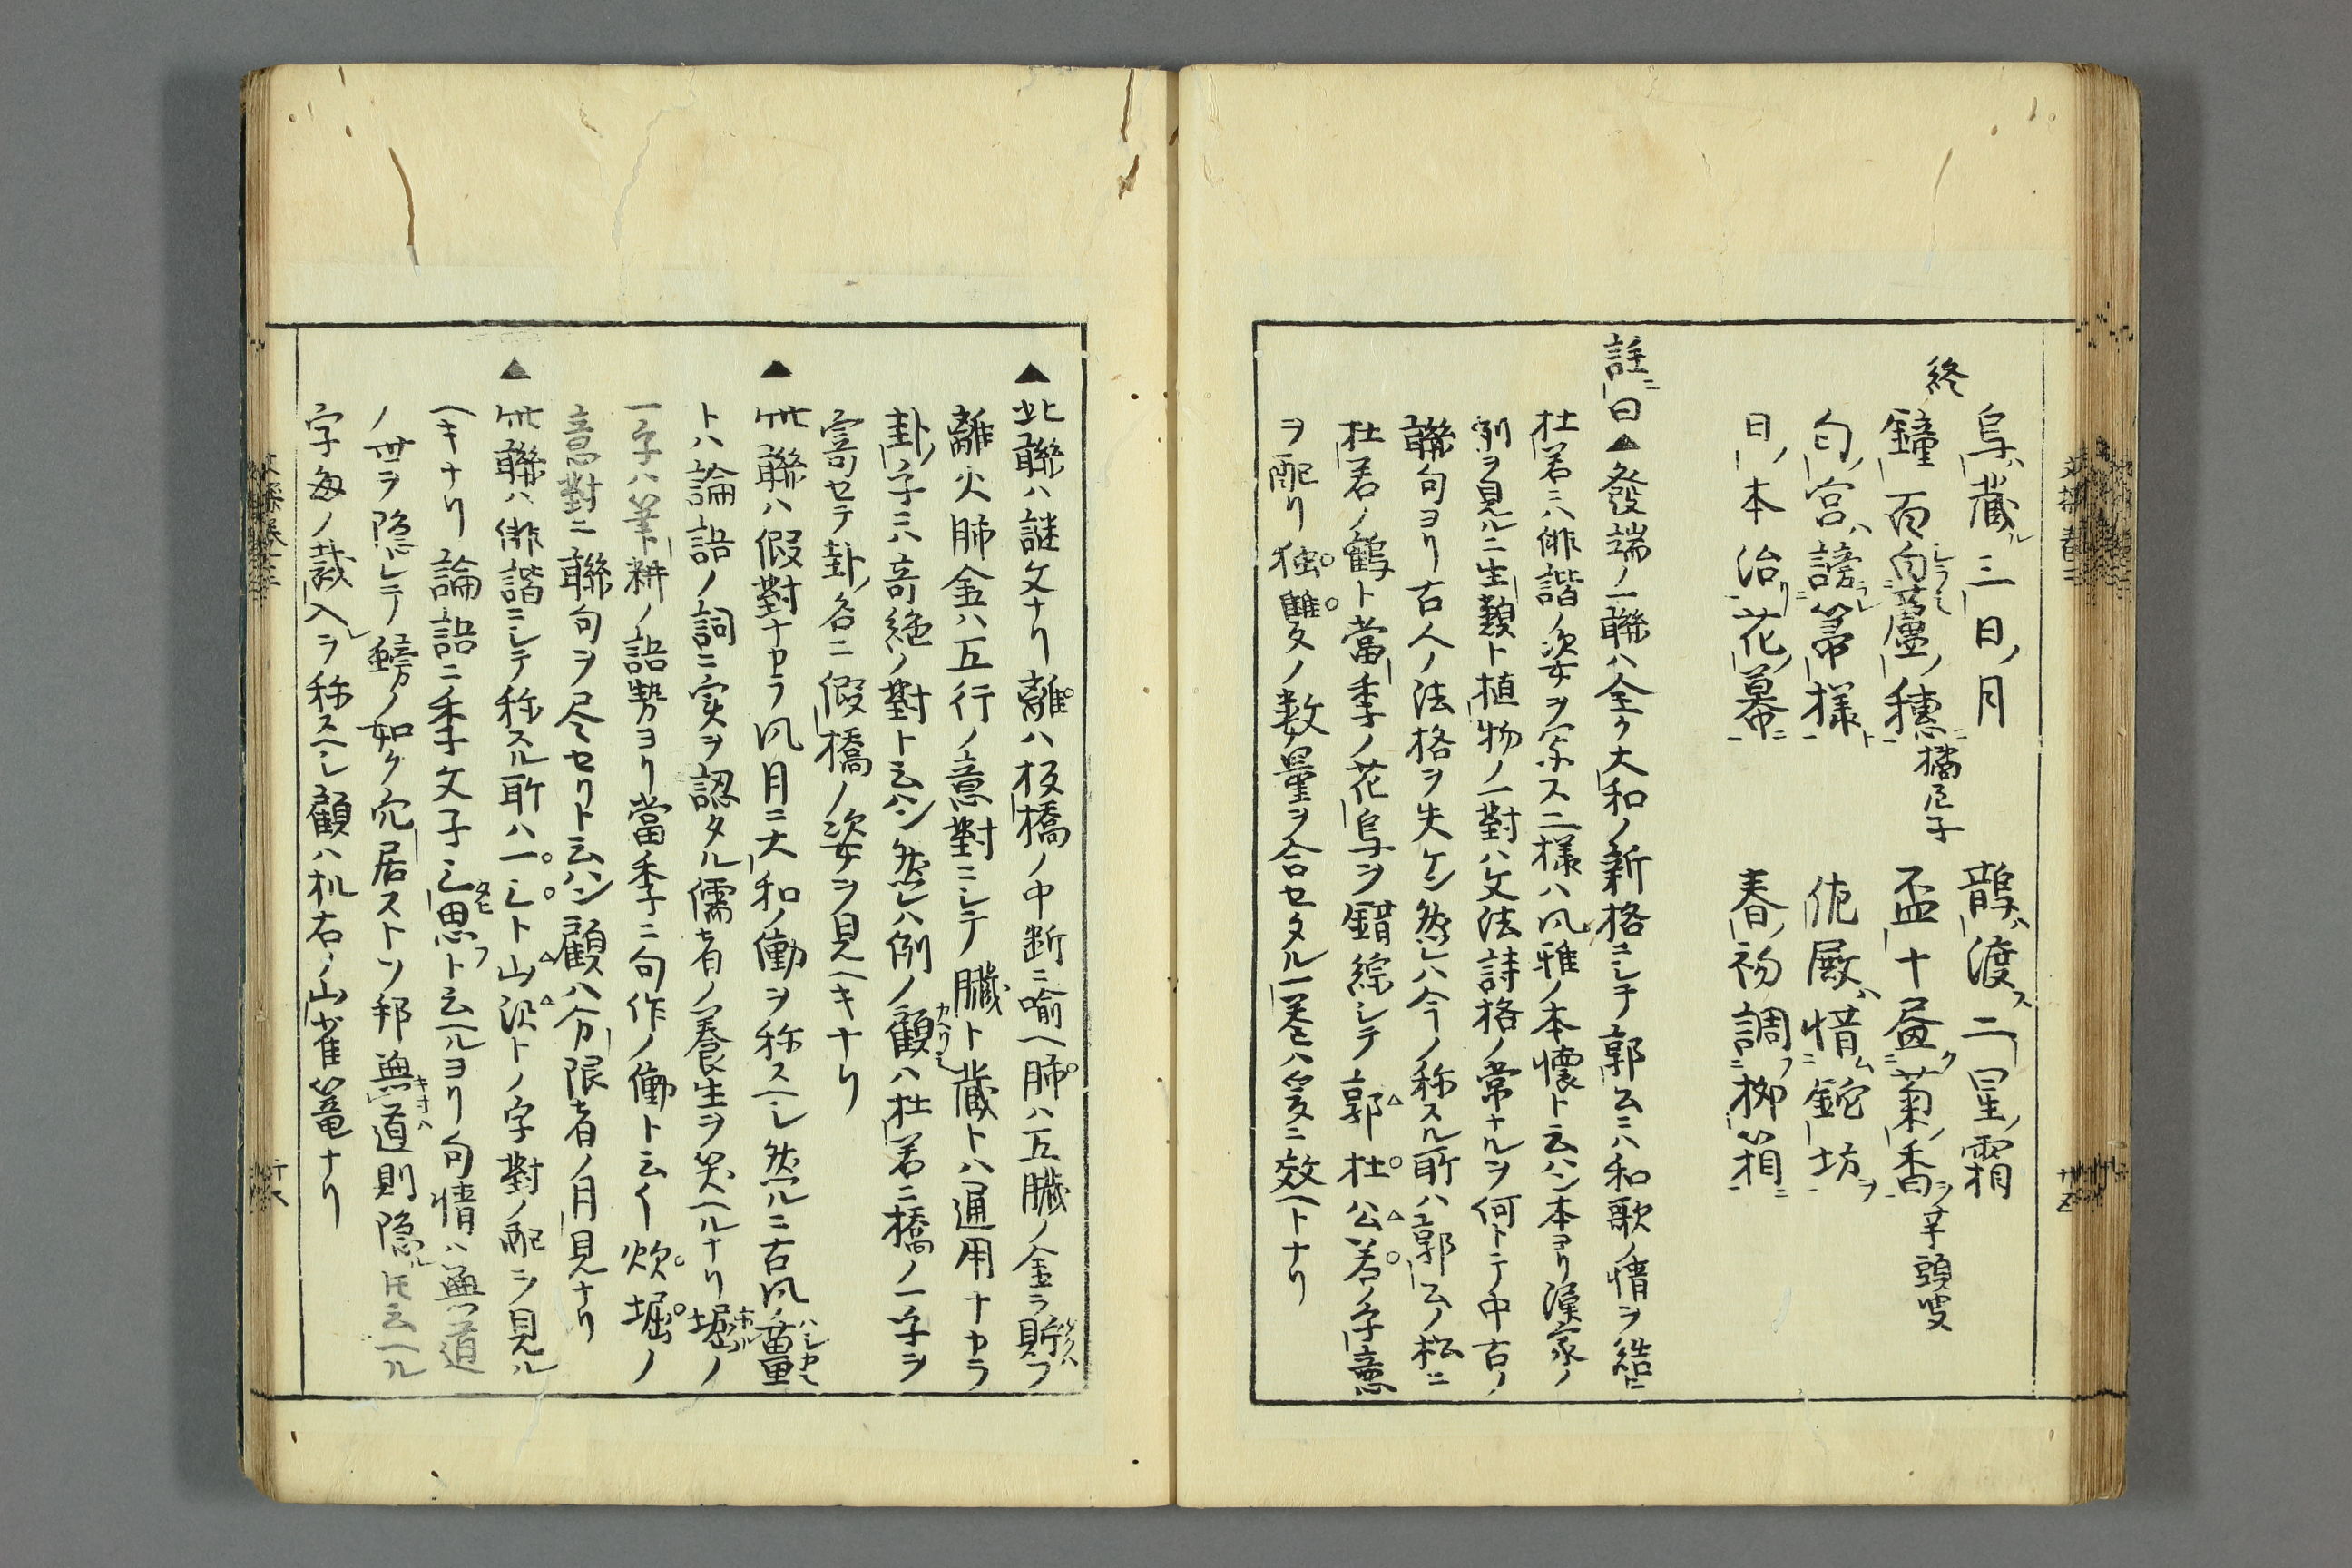 烏ハ蔵ル三日ノ月　龍ハ渡ス二星ノ霜
終
鐘百白ニ蘆ノ穗ニ橘巵子　盃十昼ニ菊ノ香ヲ芋頭叟
匂ノ宮ハ謗ラレ箒様ト　佗厩ハ惜ム鉈坊ヲ
日ノ本治リニ花ノ幕ニ　春ノ初調フ柳筥ニ
註ニ曰▲發端ノ一聯ハ全ク大和ノ新格ニシテ郭公ニハ和歌ノ情ヲ結ヒ
杜若ニハ俳諧ノ姿ヲ宗ス二様ハ風雅ノ本懷ト云ハン本ヨリ漢家ノ
例ヲ見ルニ生類ト植物ノ一對ハ文法詩格ノ常ナルヲ何トテ中古ノ
聯句ヨリ古人ノ法格ヲ失ケン然レハ今ノ称スル所ハ郭公ノ松ニ
杜若ノ鶴ト當季ノ花鳥ヲ錯綜シテ郭杜公若ノ字意
ヲ配リ独雙ノ数量ヲ合セタル一巻ハ爰ニ效ヘトナリ
▲此聯ハ謎文ナリ離ハ板橋ノ中断ニ喩ヘ肺ハ五臓ノ金ヲ貯フ
離火肺金ハ五行ノ意對ニシテ臓ト蔵トハ通用ナカラ
卦ノ字ニハ奇絶ノ對ト云ハン然レハ例ノ顧ハ杜若ニ橋ノ一字ヲ
寄セテ卦名ニ假橋ノ姿ヲ見ヘキナリ
▲此聯ハ假對ナカラ風月ニ大和ノ働ヲ称スヘシ然ルニ古風ノ畫
トハ論語ノ詞ニ実ヲ認タル儒者ノ養生ヲ笑ヘルナリ堀ノ
一字ハ筆耕ノ語勢ヨリ當季ニ句作ノ働ト云ヘク炊堀ノ
意對ニ聯句ヲ尽セリト云ハン顧ハ分限者ノ月見ナリ
▲此聯ハ俳諧ニシテ称スル所ハ一シト山沢トノ字對ノ配ヲ見ル
ヘキナリ論語ニ季文子三タヒ思フト云ヘルヨリ句情ハ無道
ノ世ヲ隠レテ鰟ノ如ク穴居ストソ邦無道則隠ルトモ云ヘル
字毎ノ裁入レヲ称スヘシ顧ハ机右ノ山雀篭ナリ